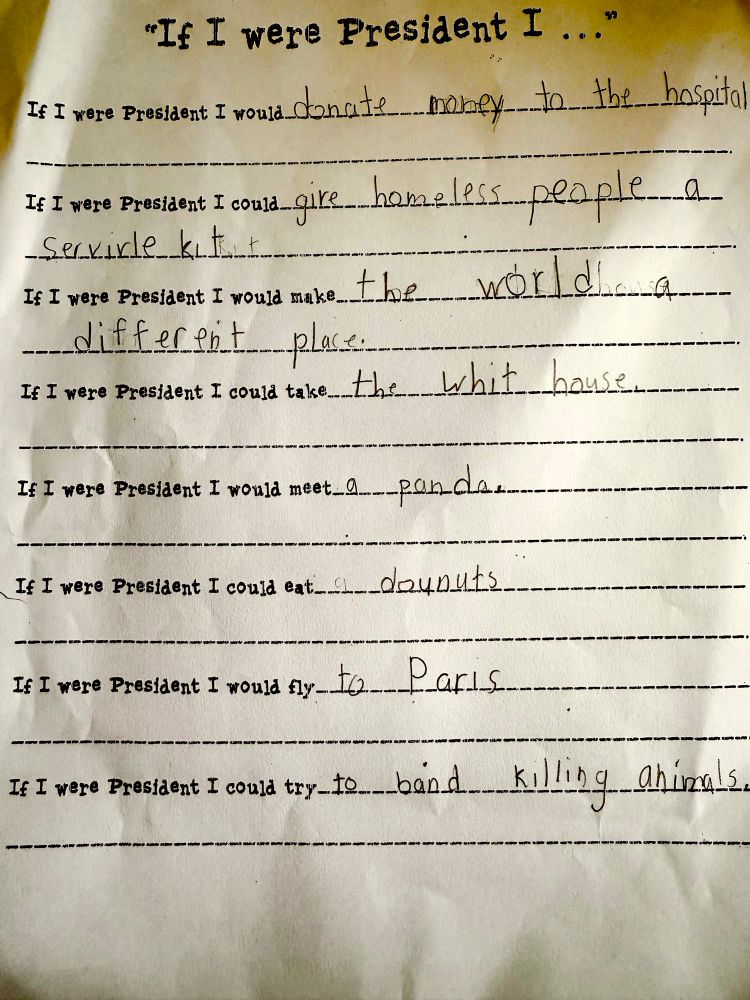 "If I were President I ..."
If I were President I would donate money to the hospital
If I were President I could give homeless people a
servirle kit
If I were President I would make the world a
different place.
If I were President I could take the whit house.
If I were President I would meet a panda.
If I were President I could eat dounuts
If I were President I would fly to Paris
If I were President I could try to band killing animals.